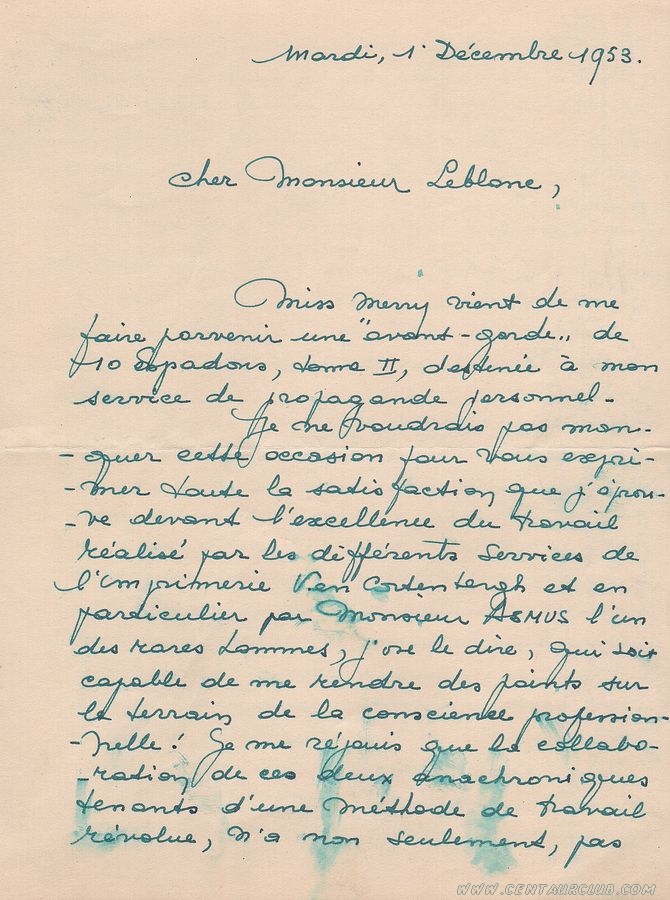 Mardi, 1 Décembre 1953.
Cher Monsieur Leblanc,
Miss Merry vient de me
faire parvenir une "avant-garde" de
10 Espadons, tome II, destinée à mon
service de propagande personnel-
Je ne voudrais pas man-
-quer cette occasion pour vous expri-
-mer toute la satisfaction que j'éprou-
-ve devant l'excellence du travail
réalisé par les différents services de
l'imprimerie Van Cortenbergh et en
particulier par Monsieur ASMUS l'un
des rares hommes, j'ose le dire, qui soit
capable de me rendre des points sur
le terrain de la conscience profession-
-nelle! Je me réjouis que la collabo-
-ration de ces deux anachroniques
tenants d'une méthode de travail
révolue, n'a non seulement, pas
WWW.CENTAURCLUB.COM